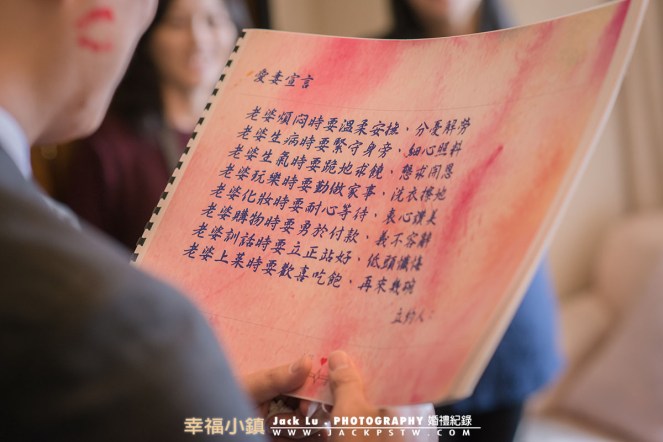 愛妻宣言
老婆煩悶時要溫柔安撫，分憂解勞
老婆生病時要緊守身旁，細心照料
老婆生氣時要跪地求饒，懇求開恩
老婆玩樂時要勤做家事，洗衣擦地
老婆化妝時要耐心等待，衷心讚美
老婆購物時要勇於付款，義不容辭
老婆訓話時要立正站好，低頭懺悔
老婆上菜時要歡喜吃飽，再來幾碗
立約人：
幸福小鎮 Jack Lu . PHOTOGRAPHY 婚禮紀錄
WWW.JACKPSTW.COM